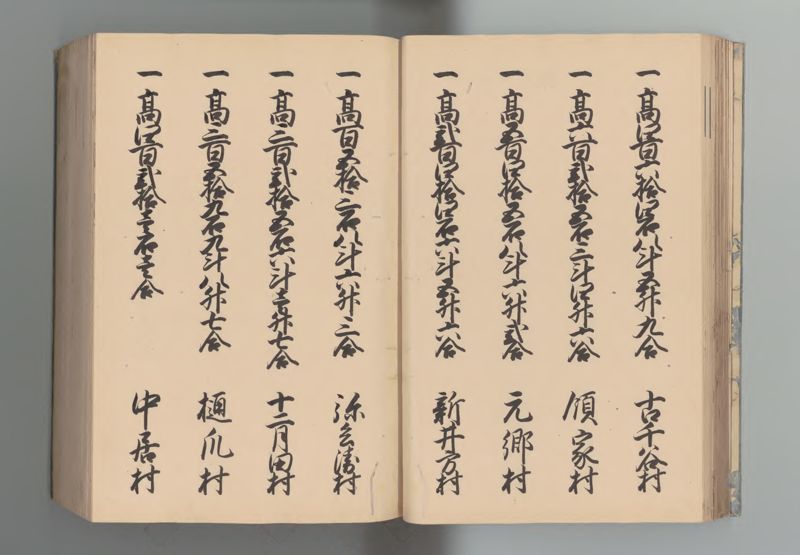 一 髙四百六拾四石八斗五升九合 古千谷村
一 髙六百弐拾五石三斗四升六合 領家村
一 髙五百四拾五石八斗六升弐合 元郷村
一 髙弐百四拾四石六斗五升六合 新井方村
一 髙百五拾三石八斗六升三合 弥兵衛村
一 髙三百弐拾五石六斗壱升七合 十二月田村
一 髙三百五拾九石九斗八升七合 樋爪村
一 髙四百弐拾壱石壱合 中居村